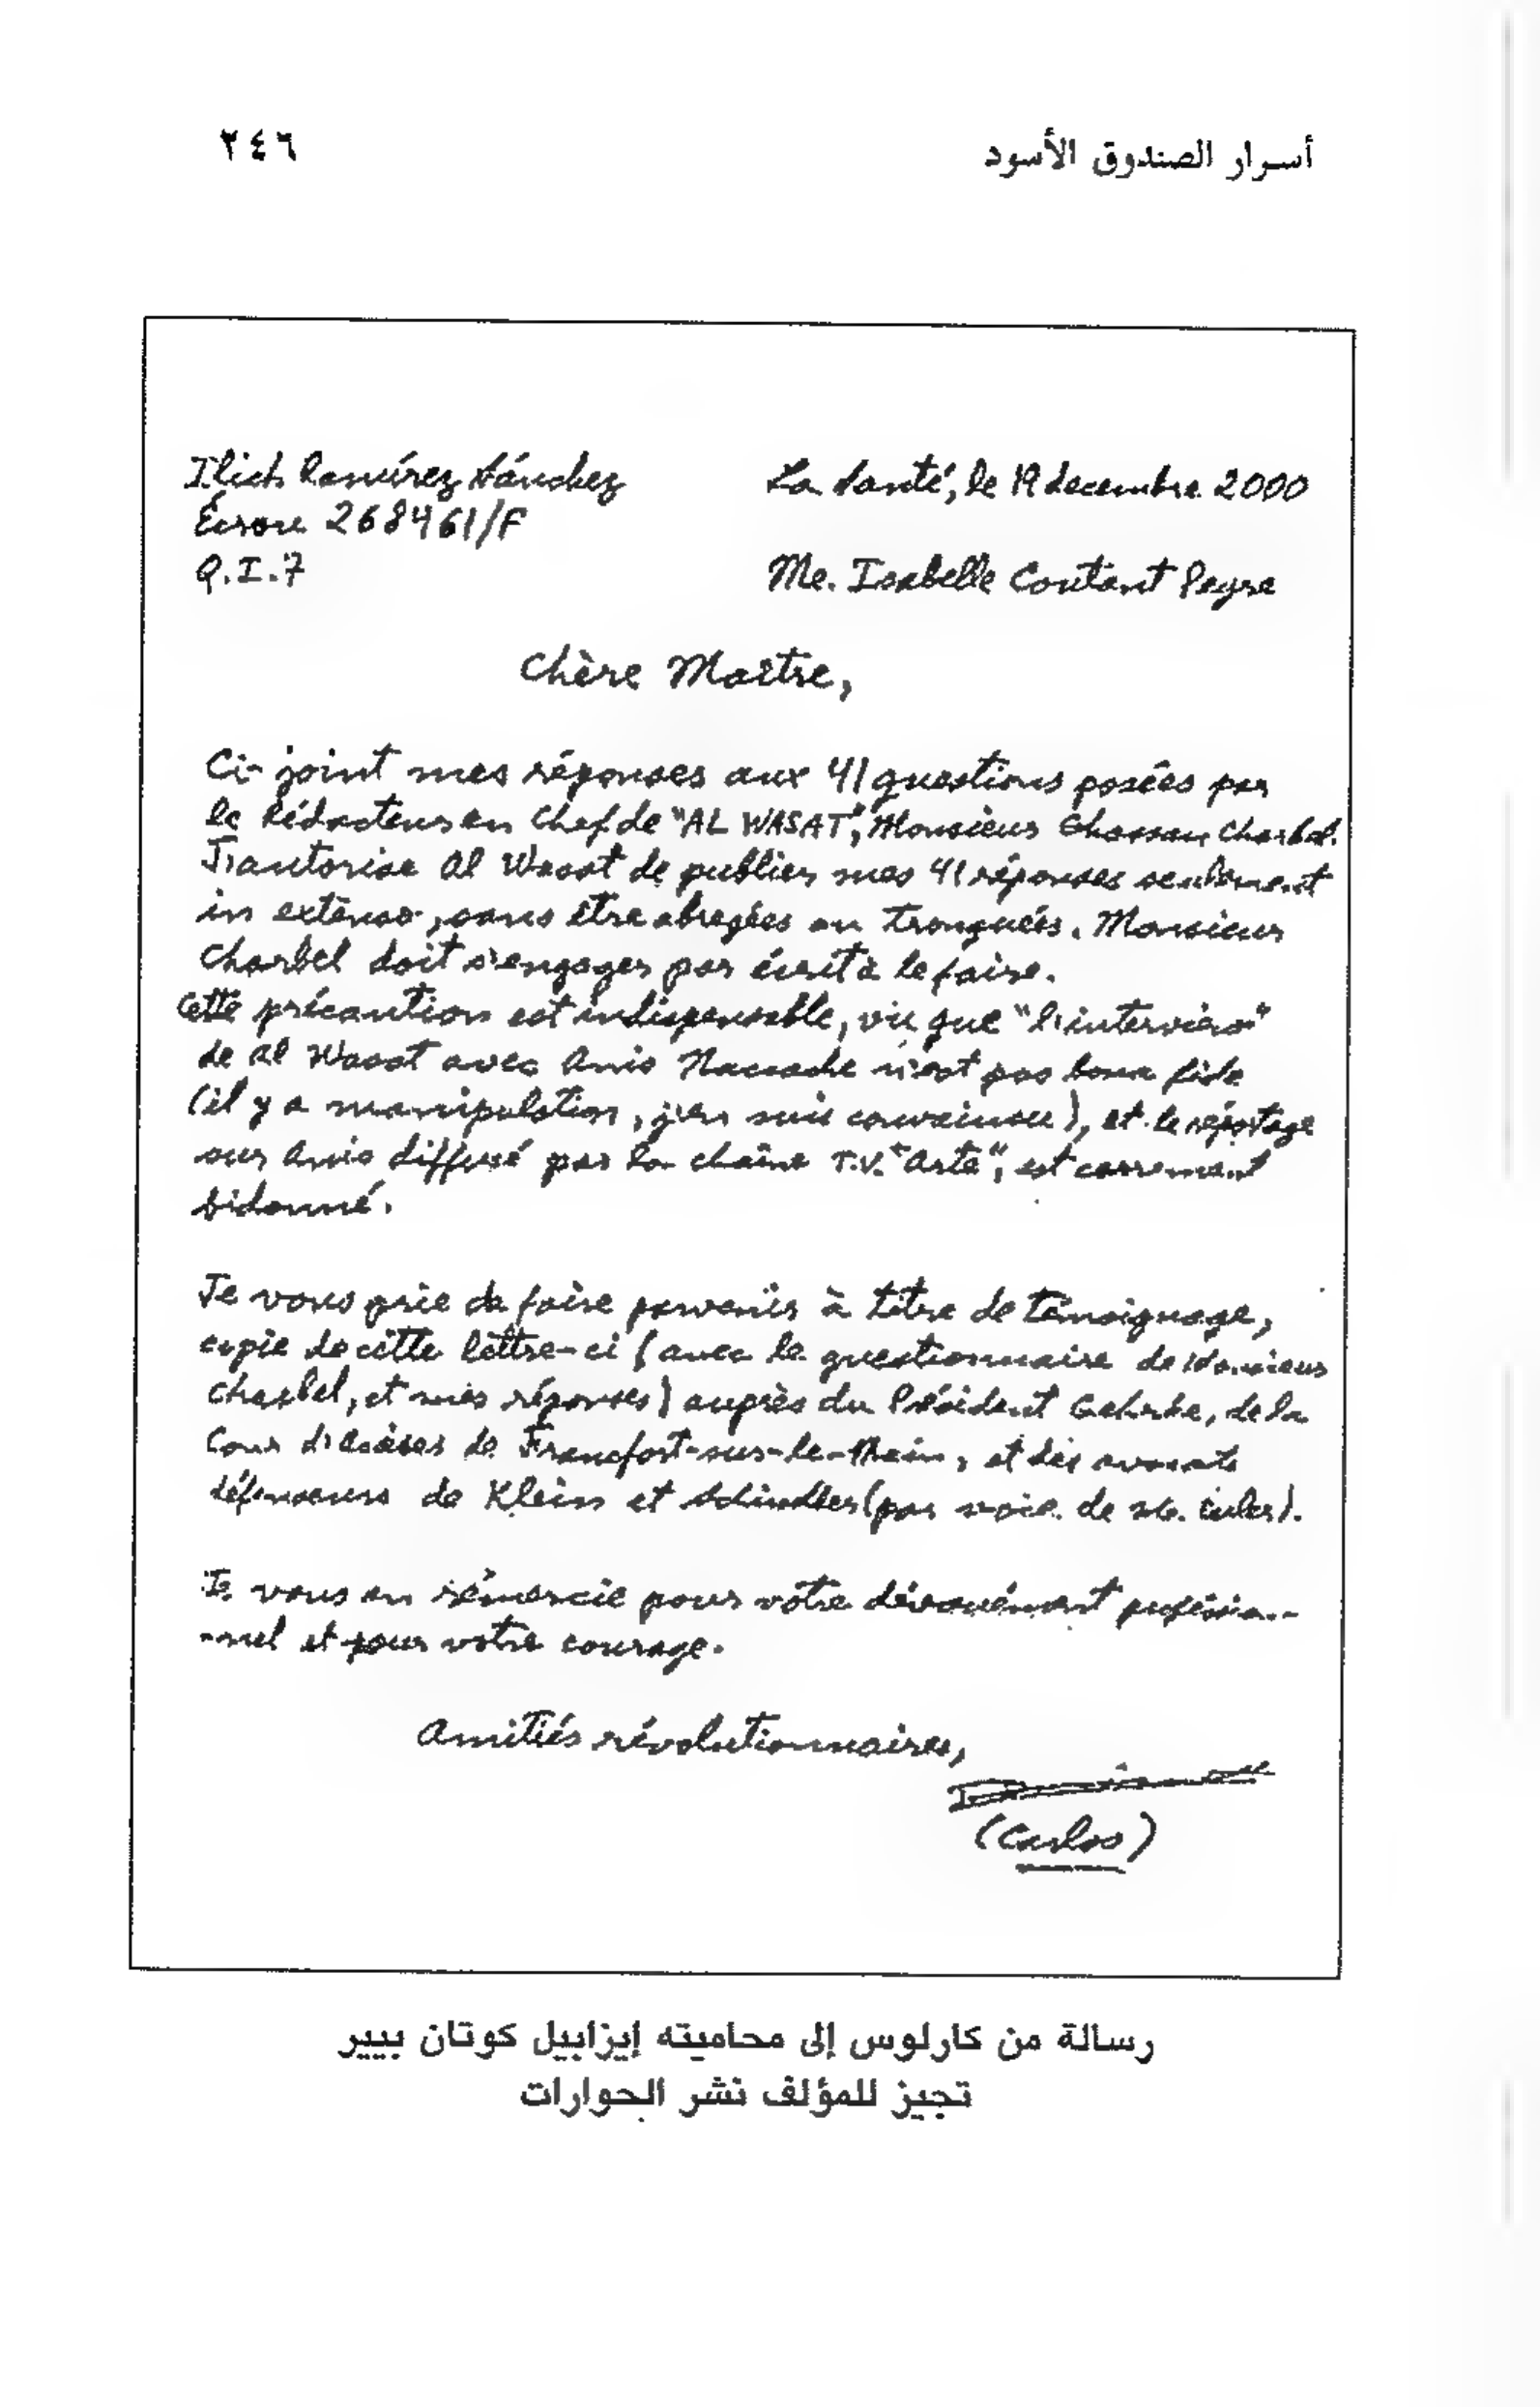 أسرار الصندوق الأسود
٢٤٦
Ilich Ramírez Sánchez
Écrou 268461/F
Q.I.7
La Santé, le 19 decembre 2000
Me. Isabelle Coutant Peyre
Chère Maître,
Ci-joint mes réponses aux 41 questions posées par
le Rédacteur en Chef de "AL WASAT", Monsieur Ghassan Charbel.
J'autorise Al Wasat de publier mes 41 réponses seulement
in extenso, sans être abregées ou tronquées. Monsieur
Charbel doit s'engager par écrit à le faire.
Cette précaution est indispensable, vu que "l'interview"
de Al Wasat avec Anis Naccache n'est pas bona fide
(il y a manipulation, j'en suis convaincu), et le réportage
sur Anis diffusé par la chaîne T.V. "Arte", est carrement
bidonné.
Je vous prie de faire parvenir à titre de témoignage,
copie de cette lettre-ci (avec le questionnaire de Monsieur
Charbel, et mes réponses) auprès du Président Gehrke, de la
Cour d'assises de Francfort-sur-le-Main, et des avocats
défenseurs de Klein et Schindler (par voie de Me.
Je vous en rémercie pour votre dévouément profession-
-nel et pour votre courage.
Amitiés révolutionnaires,
(Carlos)
رسالة من كارلوس إلى محاميته إيزابيل كوتان بيير
تجيز للمؤلف نشر الحوارات